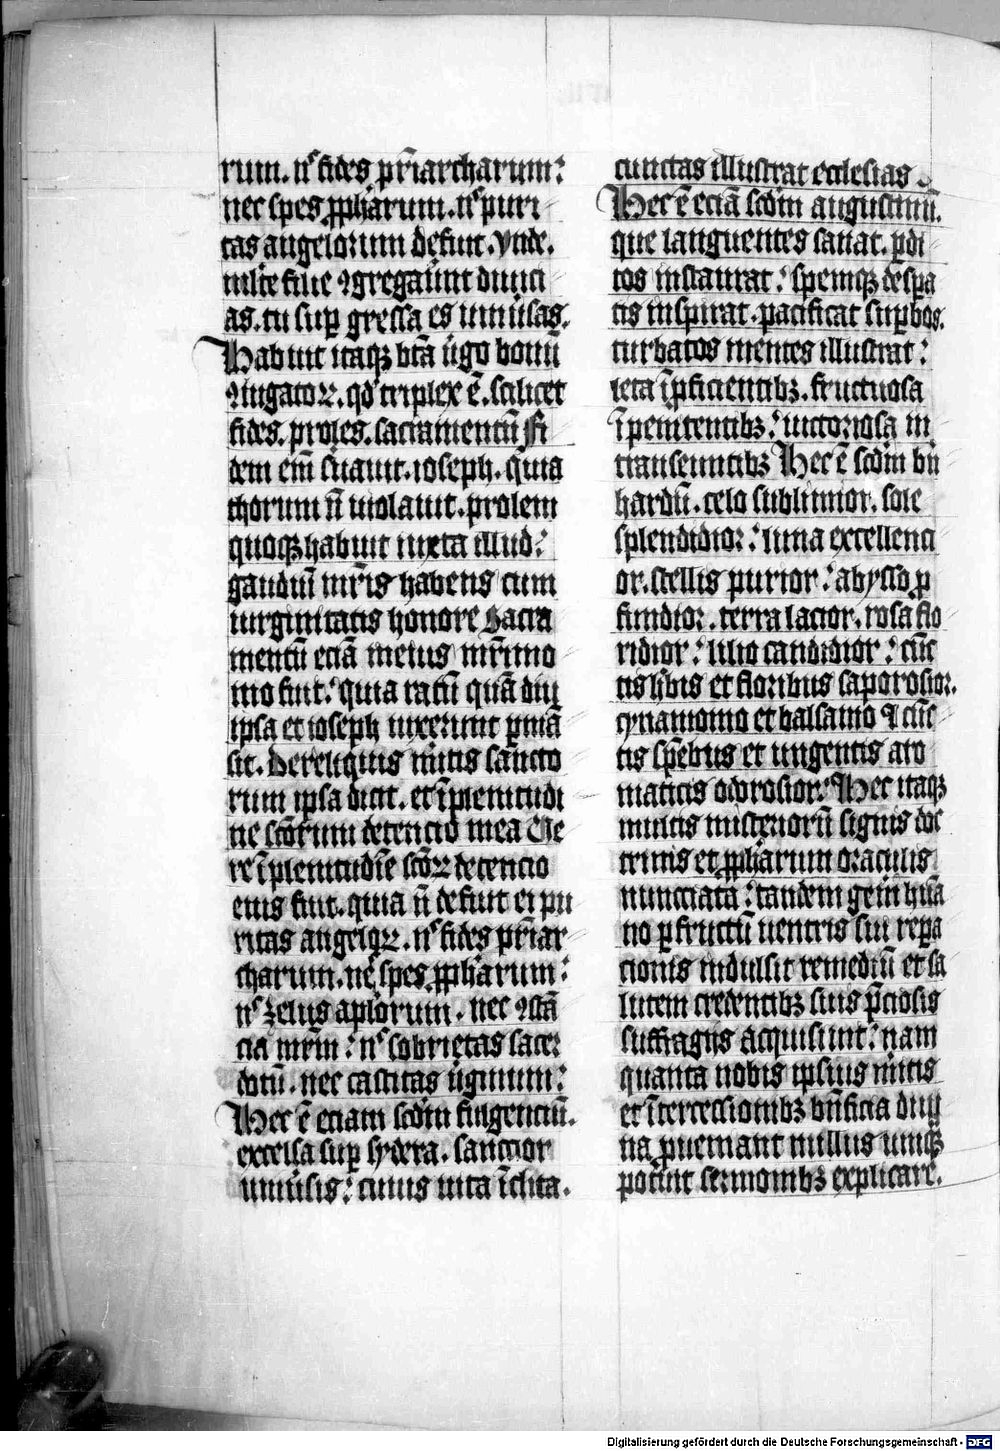 rum. nͨ fides pr̄iarcharum:
nec spes ꝓph̄arum. nͨ puri
tas angelorum defuit. Vnde.
mlt̄e filie ꝯgregau̅nt diuici
as. tu suꝑ gressa es uniu̅sas.
Habuit itaqꝫ bt̄a ǔgo bonū
ꝯiugatoꝝ. qd̛ triplex ē. scilicet
fides. proles. sacramentū Fi
dem em̄ ioseph. quia
thorum n̄ uiolauit. prolem
quoqꝫ habuit iuxta illud:
gaudiū mr̄is habens cum
uirginitatis honore Sacra
mentū eciā meius mr̄imo
nio fuit: quia ratū quā diu
ipsa et ioseph uixerunt ꝑmā
sit. De reliquiis mitis sancto
rum ipsa dicit. et ī plenitudi
ne sc̄orum detencio mea Ue
re ī plenitudīe sc̄oꝝ detencio
eius fuit. quia n̄ defuit ei pu
ritas angeloꝝ. nͨ fides pr̄iar
charum. nec spes ꝓph̄arum:
nͨ zelus apl̄orum. nec ꝯstā
cia mr̄m: nͨ sobrietas sacer
dotū. nec castitas ǔginum:
Hec ē eciam scd̄m fulgenciū.
excelsa suꝑ sydera. sanctior
uniu̅sis: cuius uita īclita.
cunctas illustrat ecclesias
Hec ē eciā scd̄m augustinū.
que languentes sanat. ꝑdi
tos instaurat: spemqꝫ despa
tis inspirat. pacificat suꝑbos.
turbatos mentes illustrat:
leta ī ꝓficientibꝫ. fructuosa
ī penitentibꝫ: uictoriosa in
transeuntibꝫ Hec ē scd̄m bn̄
hardū. celo sublimior. sole
splendidior: luna excellenci
or. stellis purior: abysso ꝓ
fundior. terra lacior. rosa flo
ridior: lilio candidior: cūc
tis h̄bis et floribus saporosior.
cynamomo et balsamo ⁊ cūc
tis sp̄ebus et ungentis aro
maticis odorosior: Hec itaqꝫ
multis misteriorū signis doc
trinis et ꝓph̄arum oraculis
nunciata: tandem gen̄i hūa
no ꝑ fructū uentris sui repa
cionis indulsit remediū et sa
lutem credentibꝫ suis p̄ciosis
suffragijs acquisiuit: nam
quanta nobis ipsius mitis
et ītercessionibꝫ bn̄ficia diui
na ꝓueniant nullus umqꝫ
pot̄int sermonibꝫ explicare.
Digitalisierung gefördert durch die Deutsche Forschungsgemeinschaft - DFG